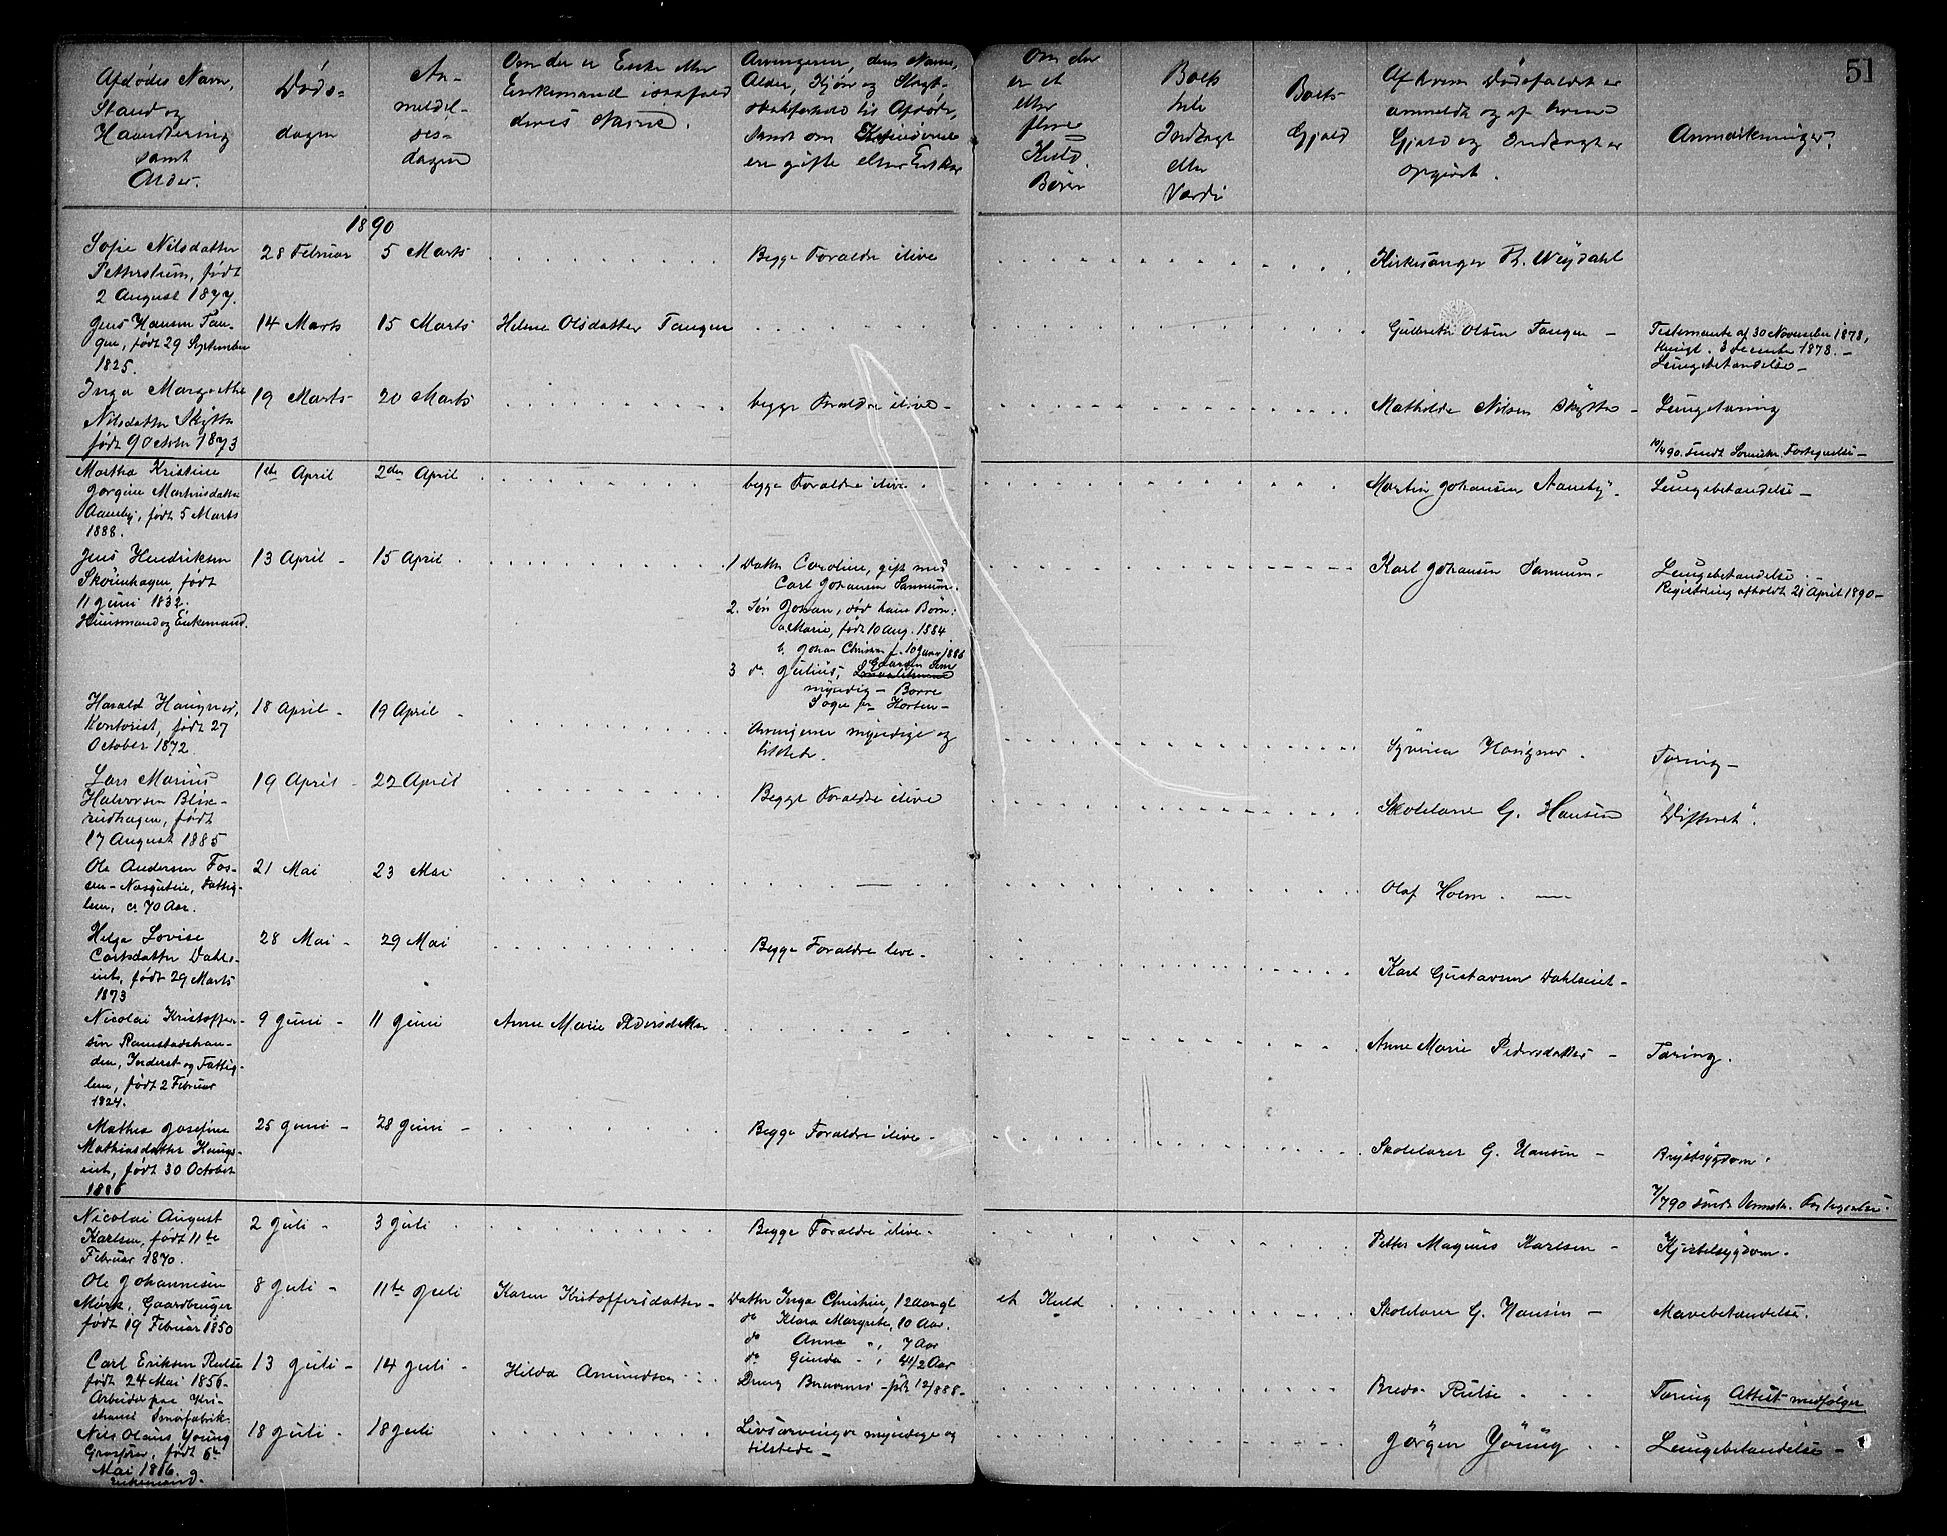 51
Afdødes Navn,
Stand og
Haandtering
samt
Alder.
Døds-
dagen
An-
meldel-
ses-
dagen
Om der er Enke eller
Enkemand isaafald
deres Navne.
Arvingerne, deres Navne,
Alder, Kjøn og Slægt-
skabsforhold til Afdøde,
samt om Kvinderne
ere gifte eller Enker
Om der
er et
eller
flere
Kuld
Børn
Boets
Indtægt
eller
Værdi
Boets
Gjæld
Af hvem Dødsfaldet er
anmeldt og af hvem
Gjæld og Indtægt er
opgivet.
Anmærkninger.
1890
Sofie Nilsdatter
født
2 August 1877.
28 Februar
5 Marts
Begge Forældre ilive
Kirkesanger Th. Weydahl
Jens Hansen Tan-
gen, født 29 September
1825.
14 Marts
15 Marts
Helene Olsdatter Tangen
Gulbrith Olsen Tangen -
Testamente af 30 November 1878,
3 December 1878. -
Lungebetændelse -
Inga Margrethe
Nilsdatter Skytte
født 9 October 1873
19 Marts -
20 Marts
begge Forældre ilive -
Mathilde Nilsen Skytte -
Lungetæring
10/4 90. sendt Fortegnelse -
Martha Kristine
Jørgine Martinsdatter
Aaneby, født 5 Marts
1888.
1ste April
2den April
begge Forældre ilive.
Martin Johansen Aaneby.
Lungebetændelse -
Jens Hendriksen
Skøienhagen, født
11 Juni 1832.
Huusmand og Enkemand.
13 April -
15 April
1 Datter Caroline, gift med
Carl Johansen Sannum.
2. Søn Johan, død hans Børn:
a. Marie, født 10 Aug. 1884
b. Johan Christian f. 10 Januar 1886
3 do Julius,
myndig - Borre
Sogn pr Horten -
Karl Johansen Sannum.
Lungebetændelse. -
Registrering afholdt 21 April 1890 -
Harald Haugner,
Kontorist, født 27
October 1872.
18 April -
19 April -
Arvingerne myndige og
tilstede.
Haugner.
Tæring -
Lars Marius
Halvorsen Blix-
rudhagen, født
17 August 1885
19 April -
22 April
Begge Forældre ilive
Skolelærer G. Hansen
"Difterit".
Ole Andersen Fos-
sen - Fattig-
lem, ca 70 Aar.
21 Mai
23 Mai
Olaf Holm. -
Helga Lovise
Carlsdatter Dahls-
eiet, født 29 Marts
1873
28 Mai -
29 Mai
Begge Forældre leve -
Karl Gustavsen Dahlseiet -
Nicolai Kristoffer-
sen Ramstadstran-
den, Inderst og Fattig-
lem, født 2 Februar
1824.
9 Juni -
11 Juni
Anne Marie Pedersdatter
Anne Marie Pedersdatter -
Tæring.
Mathea Josefine
Mathiasdatter Haugs-
eiet, født 30 October
1886
25 Juni -
28 Juni -
Begge Forældre ilive -
Skolelærer G. Hansen -
Brystsygdom.
7/7 90 sendt Fortegnelse.
Nicolai August
Karlsen, født 11te
Februar 1870.
2 Juli -
3 Juli
Begge Forældre ilive -
Petter Magnus Karlsen -
Kjertelsygdom.
Ole Johannesen
Mørk, Gaardbruger
født 19 Februar 1850
8 Juli -
11te Juli
Karen Kristoffersdatter -
Datter Inga Christine, 12 Aar gl
do Klara Margrete, 10 Aar.
do Anna ", 7 Aar
do Gunda ", 4 1/2 Aar
et Kuld
Skolelærer G. Hansen -
Mavebetændelse.
Carl Eriksen Rulse
født 24 Mai 1856 -
Arbeider paa Kri-
stiania Smørfabrik.
13 Juli -
14 Juli -
Hilda Amundsen
Rulse
Tæring Attest medfølger
Nils Olaus Young
Grosserer, født 6te
Mai 1816.
Enkemand.
18 Juli -
18 Juli
Livsarvinger myndige og
tilstede -
Jørgen Young
Lungebetændelse -